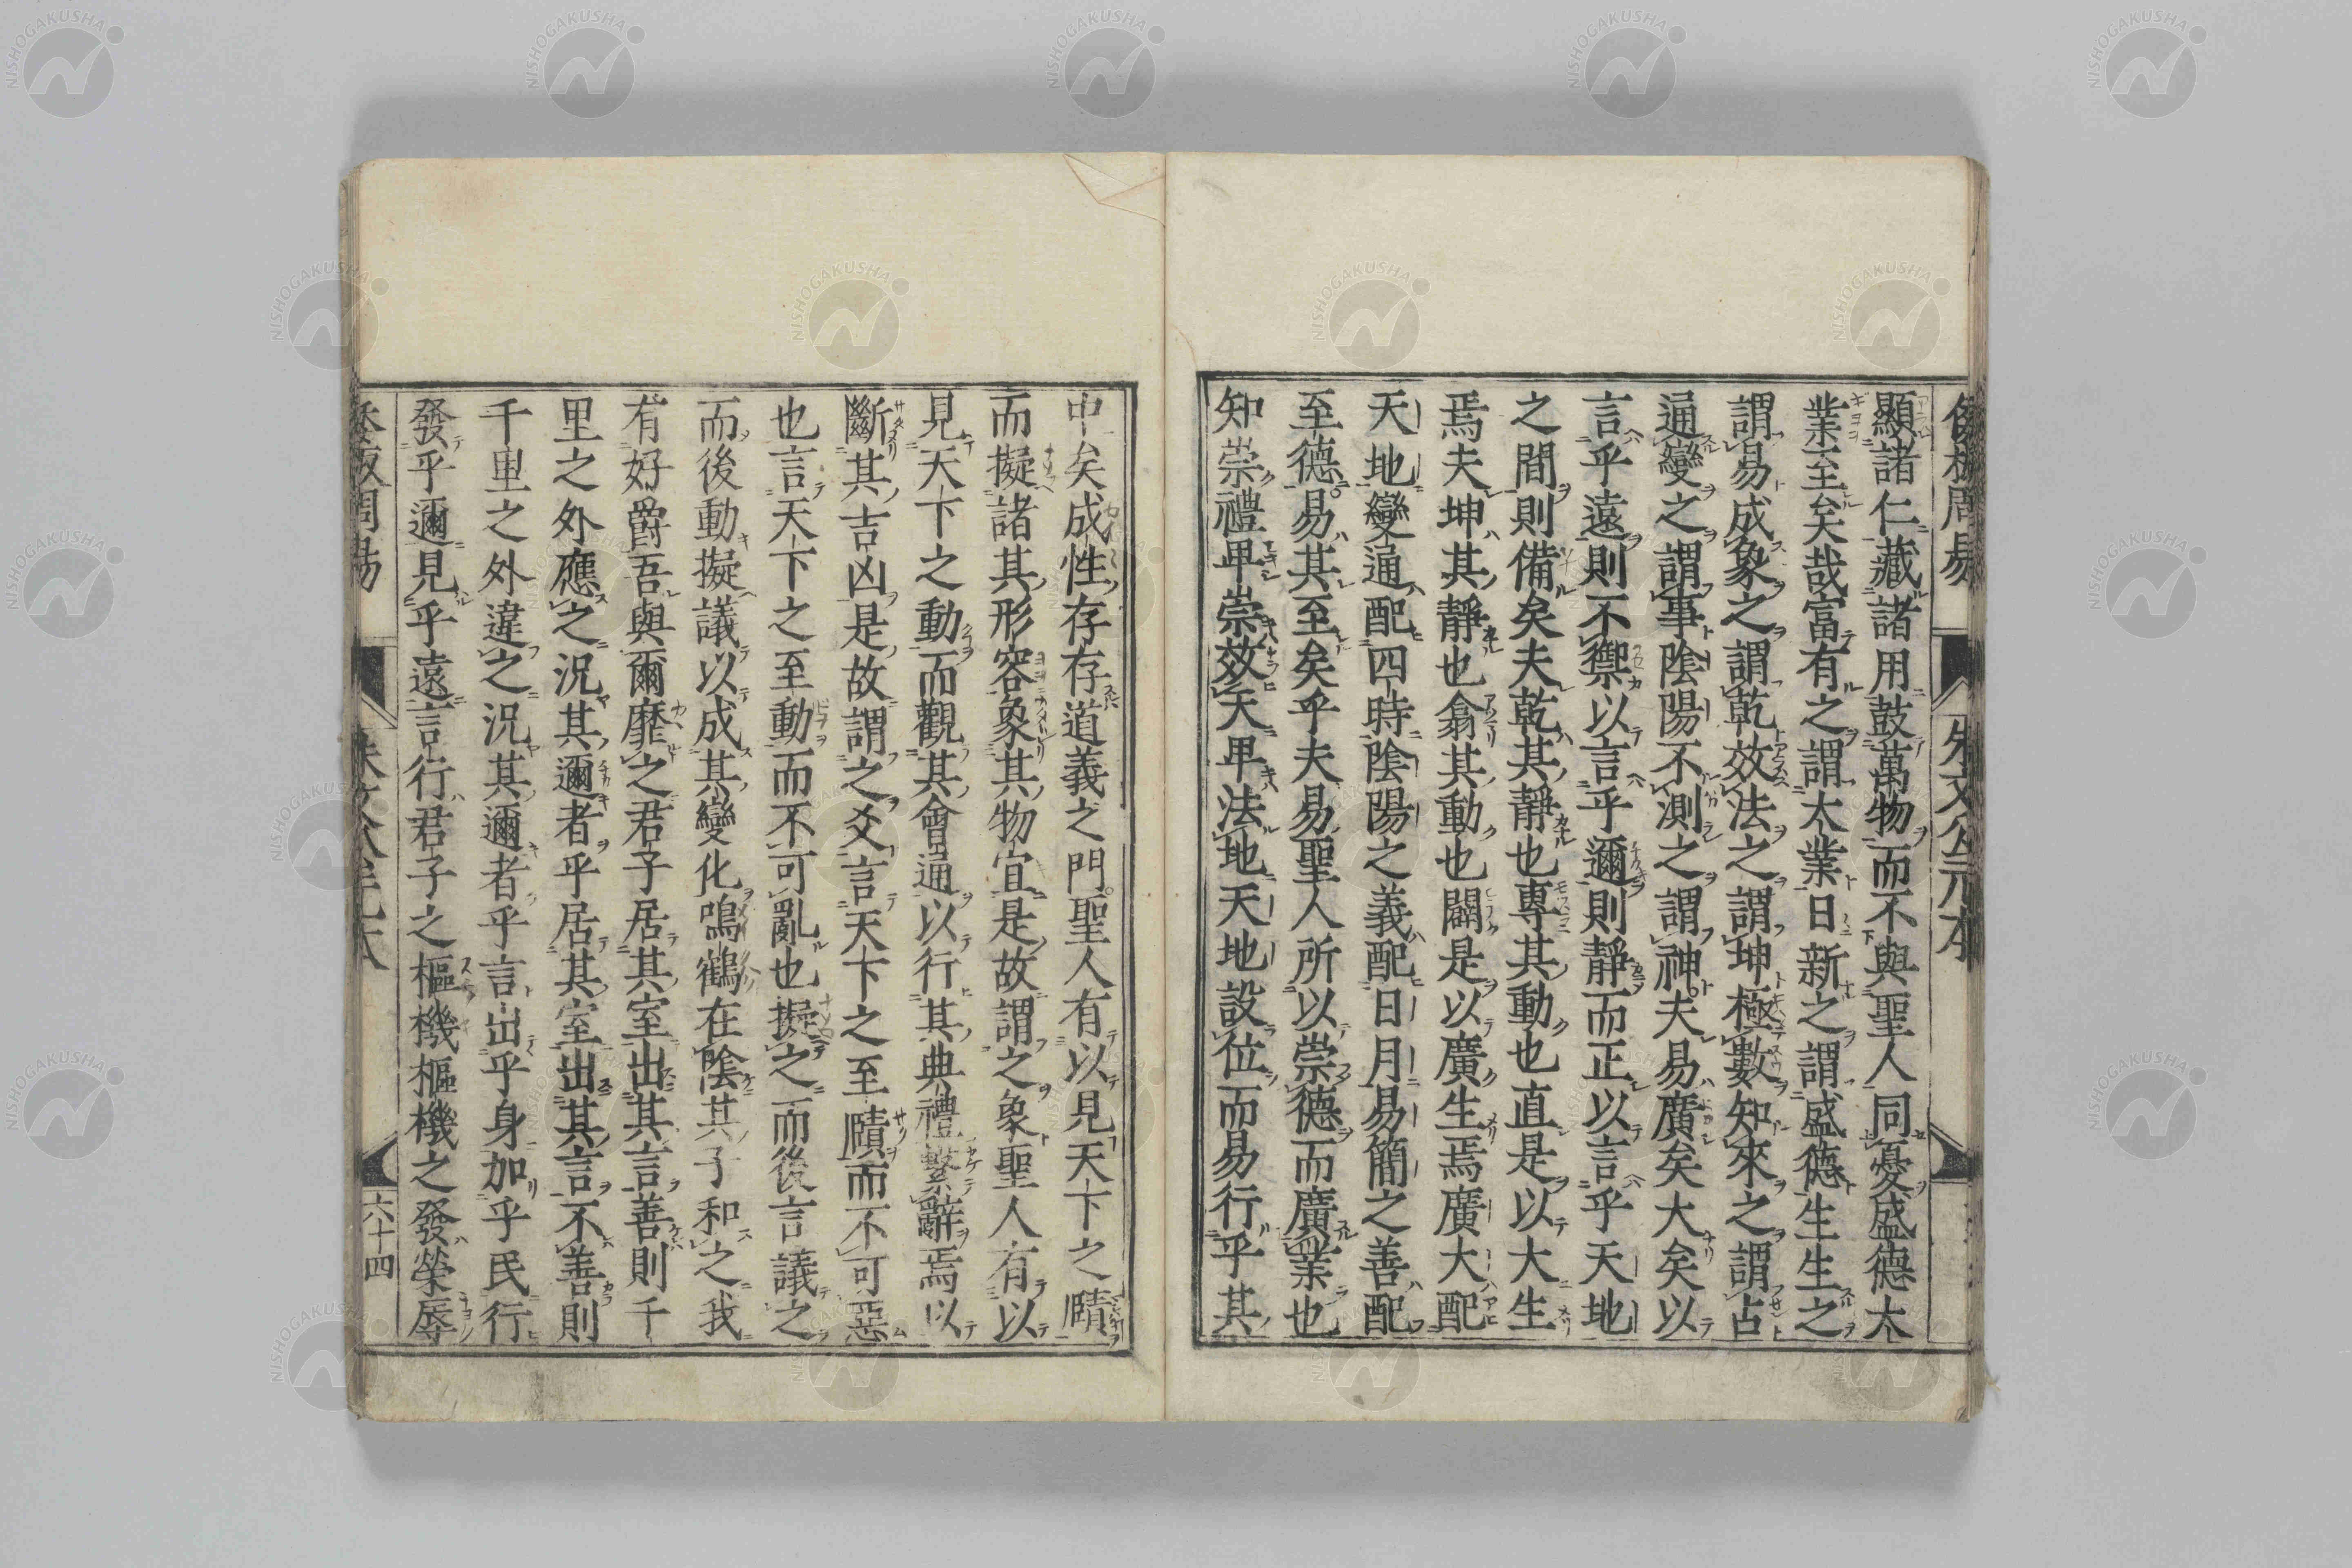 顯諸仁藏諸用鼓萬物而不與聖人同憂盛德大
業至矣哉富有之謂大業日新之謂盛德生生之
謂易成象之謂乾效法之謂坤極數知來之謂占
通變之謂事陰陽不測之謂神夫易廣矣大矣以
言乎遠則不禦以言乎邇則靜而正以言乎天地
之間則備矣夫乾其靜也專其動也直是以大生
焉夫坤其靜也翕其動也闢是以廣生焉廣大配
天地變通配四時陰陽之義配日月易簡之善配
至德易其至矣乎夫易聖人所以崇德而廣業也
知崇禮卑崇效天卑法地天地設位而易行乎其
中矣成性存存道義之門聖人有以見天下之賾
而擬諸其形容象其物宜是故謂之象聖人有以
見天下之動而觀其會通以行其典禮繫辭焉以
斷其吉凶是故謂之爻言天下之至賾而不可惡
也言天下之至動而不可亂也擬之而後言議之
而後動擬議以成其變化鳴鶴在陰其子和之我
有好爵吾與爾靡之君子居其室出其言善則千
里之外應之況其邇者乎居其室出其言不善則
千里之外違之況其邇者乎言出乎身加乎民行
發乎邇見乎遠言行君子之樞機樞機之發榮辱
六十四
NISHOGAKUSHA